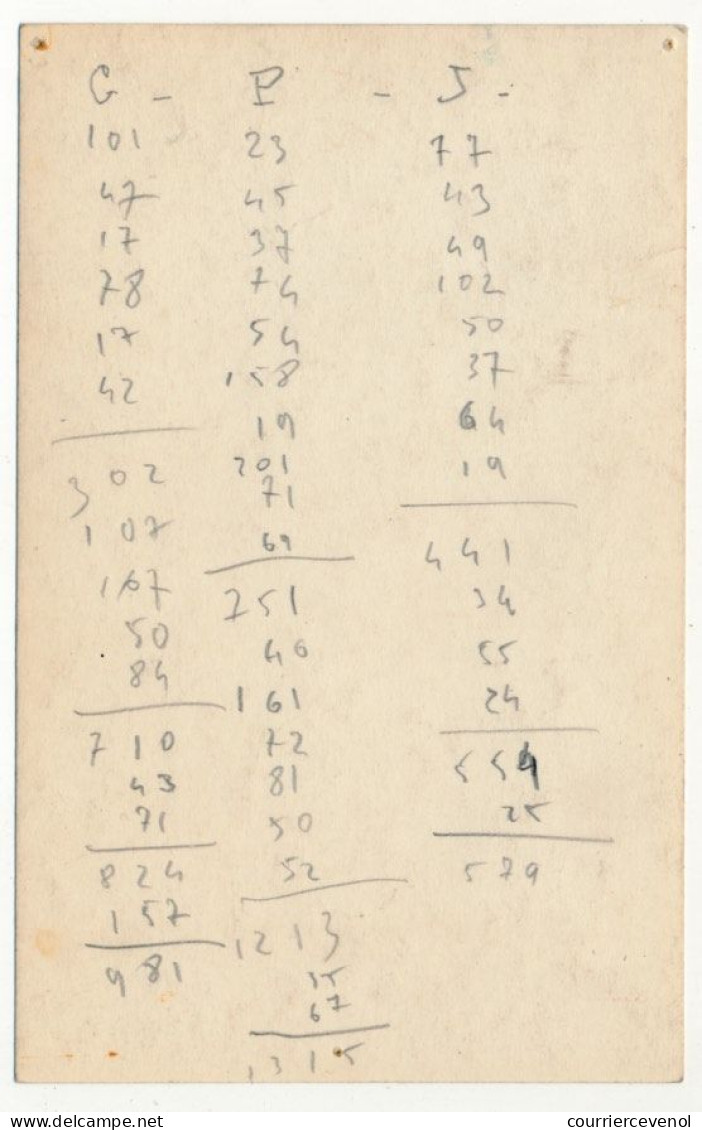 G - P - J -
101 23 77
47 45 43
17 37 49
78 74 102
17 54 50
42 158 37
19 64
302 201 19
107 71
167 69 441
50 751 34
84 40 55
161 24
710 72 554
43 81 25
71 50
824 52 579
157 1213
981 35
67
1315
courriercevenol